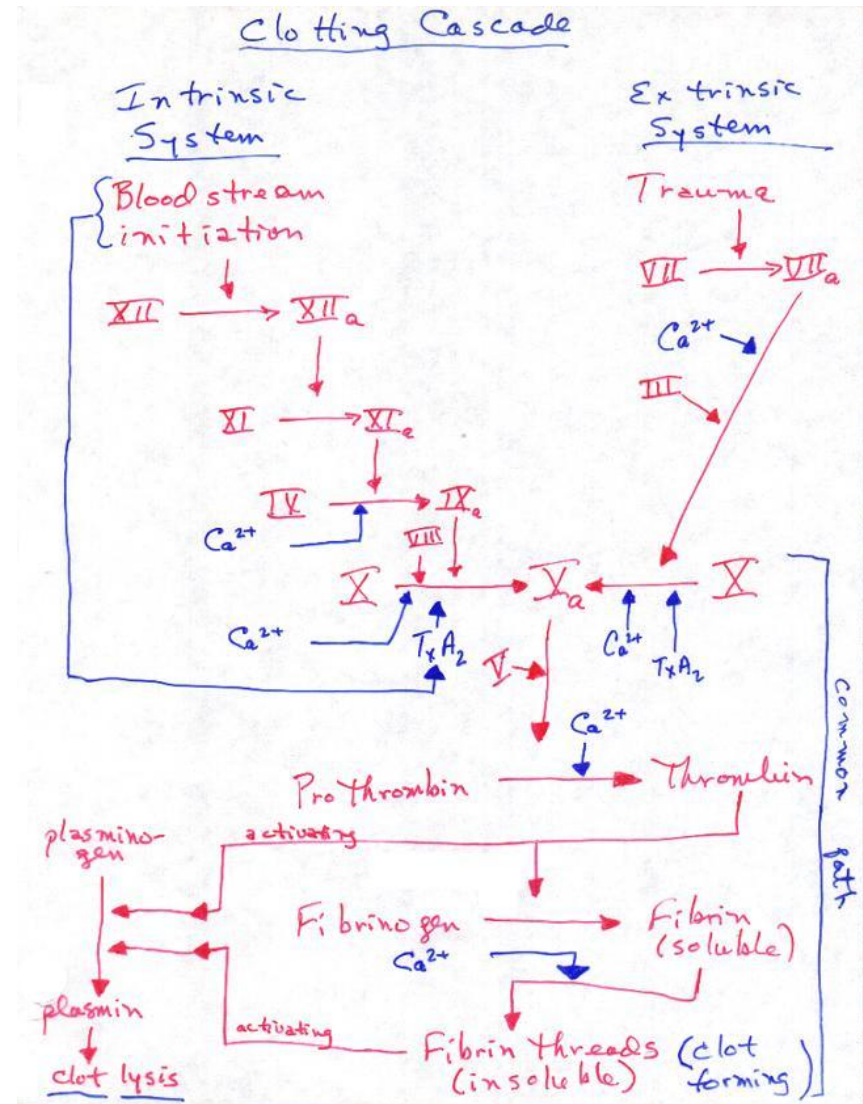 Clotting Cascade
Intrinsic
System
Extrinsic
System
Blood stream
initiation
Trauma
VII
VIIa
XII
XIIa
Ca2+
III
XI
XIa
IX
IXa
Ca2+
VIII
X
Xa
X
Ca2+
TxA2
V
Ca2+
TxA2
Ca2+
common path
Prothrombin
Thrombin
plasmino-
gen
activating
Fibrinogen
Fibrin
(soluble)
Ca2+
plasmin
activating
Fibrin threads (clot
(insoluble) forming)
clot lysis